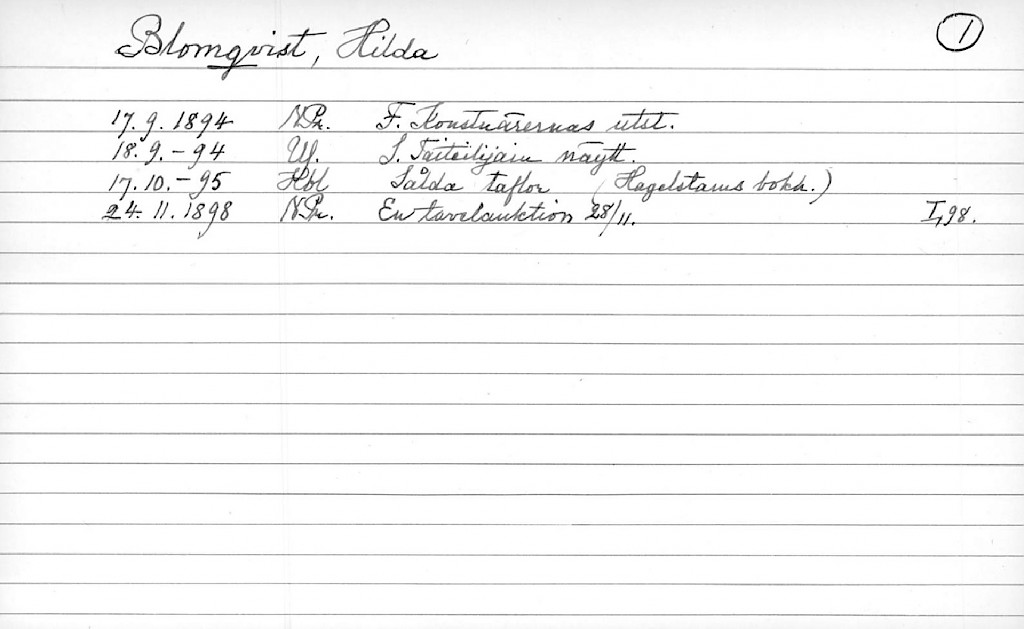 Blomqvist, Hilda 1
17.9.1894 NPr. F. Konstnärernas utst.
18.9.-94 Uf. S. Taiteilijain näytt.
17.10.-95 Hbl Sålda taflor (Hagelstams bokh.)
24.11.1898 NPr. En tavelauktion 28/11. I,98.